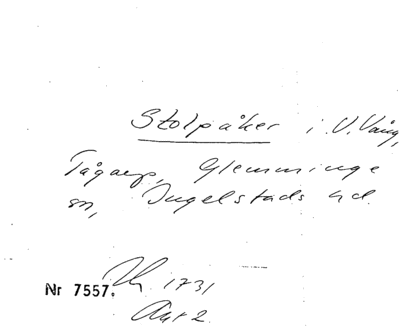 Stolpåker i V. Vång,
Tågarp, Glemminge
sn, Ingelstads hd.
1731
Nr 7557.
Akt 2